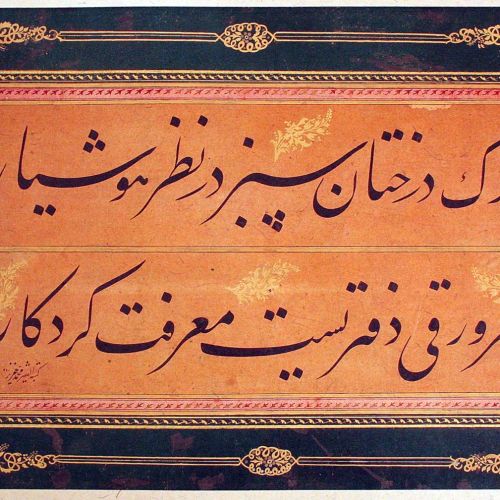 رک درختان سبز در نظر هوشیار
هر ورقی دفتریست معرفت کردکار